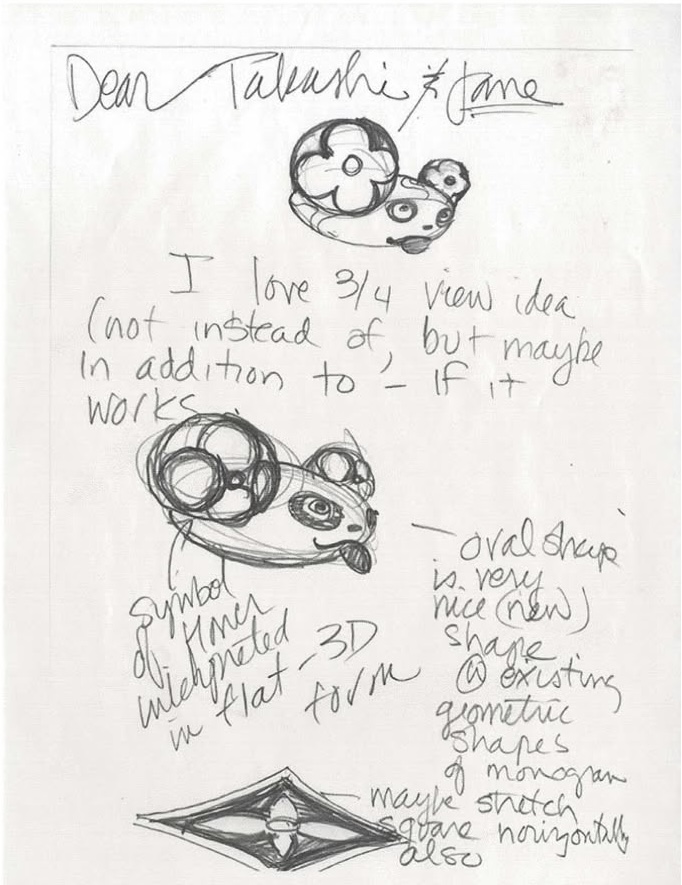 Dear Takashi & Jane
I love 3/4 view idea
(not instead of, but maybe
in addition to – if it
works
symbol
of flower
interpreted
in flat - 3D
form
– oval shape
is very
nice (new)
shape
W existing
geometric
shapes
of monogram
maybe stretch
square horizontally
also